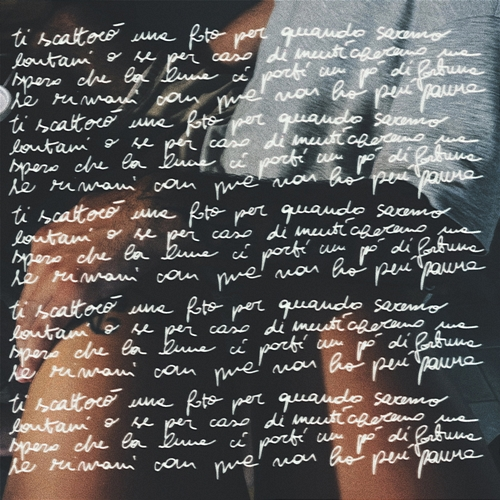 ti scatterò una foto per quando saremo
lontani o se per caso di menticheremo ma
spero che la luna ci porti un pò di fortuna
se rimani con me non ho più paura
ti scatterò una foto per quando saremo
lontani o se per caso di menticheremo ma
spero che la luna ci porti un pò di fortuna
se rimani con me non ho più paura
ti scatterò una foto per quando saremo
lontani o se per caso di menticheremo ma
spero che la luna ci porti un pò di fortuna
se rimani con me non ho più paura
ti scatterò una foto per quando saremo
lontani o se per caso di menticheremo ma
spero che la luna ci porti un pò di fortuna
se rimani con me non ho più paura
ti scatterò una foto per quando saremo
lontani o se per caso di menticheremo ma
spero che la luna ci porti un pò di fortuna
se rimani con me non ho più paura